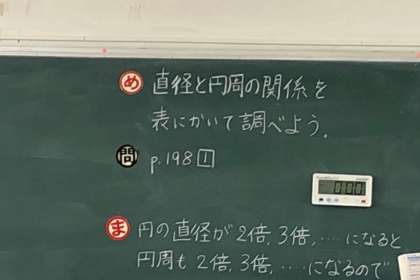 め 直径と円周の関係を
表にかいて調べよう。
問 p.198 1
ま 円の直径が2倍,3倍,…になると
円周も2倍,3倍,…になるので